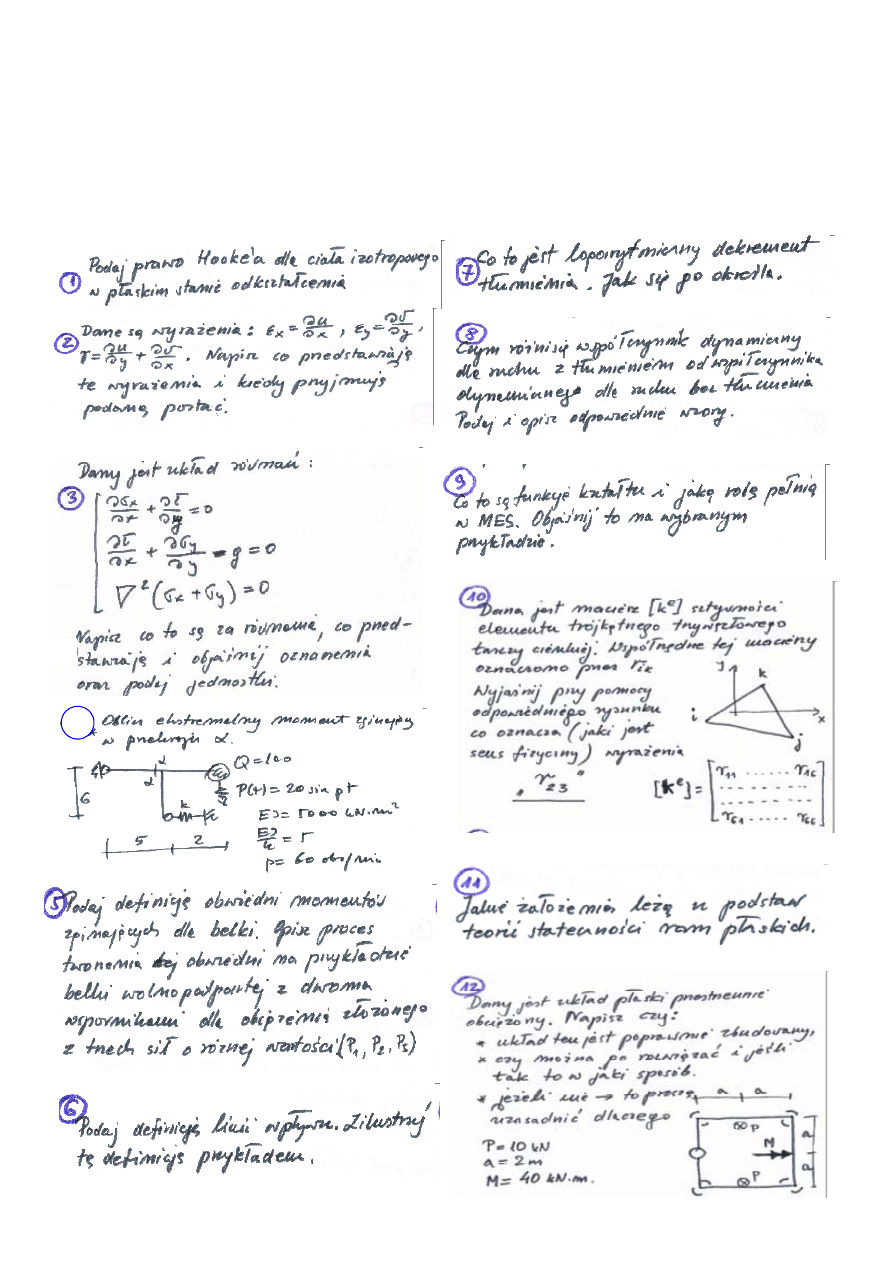 1 Podaj prawo Hooke'a dla ciała izotropowego
w płaskim stanie odkształcenia
2 Dane są wyrażenia: εx = ∂u/∂x, εy = ∂v/∂y,
γ = ∂u/∂y + ∂v/∂x. Napisz co przedstawiają
te wyrażenia i kiedy przyjmują
podaną postać.
Dany jest układ równań:
3 ∂σx/∂x + ∂τ/∂y = 0
∂τ/∂x + ∂σy/∂y - g = 0
∇²(σx + σy) = 0
Napisz co to są za równania, co przed-
stawiają i objaśnij oznaczenia
oraz podaj jednostki.
Oblicz ekstremalny moment zginający
w przekroju α.
Q=100
α
α
P(t) = 20 sin pt
6
k
EJ = 5000 kN·m²
EJ/k = 5
5 2
p = 60 obr/min
5 Podaj definicję obwiedni momentów
zginających dla belki. Opisz proces
tworzenia tej obwiedni na przykładzie
belki wolnopodpartej z dwoma
wspornikami dla obciążenia złożonego
z trzech sił o różnej wartości (P1, P2, P3)
6 Podaj definicję linii wpływu. Zilustruj
tę definicję przykładem.
7 Co to jest logarytmiczny dekrement
tłumienia. Jak się go określa.
8
Czym różni się współczynnik dynamiczny
dla ruchu z tłumieniem od współczynnika
dynamicznego dla ruchu bez tłumienia
Podaj i opisz odpowiednie wzory.
9
Co to są funkcje kształtu i jaką rolę pełnią
w MES. Objaśnij to na wybranym
przykładzie.
10
Dana jest macierz [kᵉ] sztywności
elementu trójkątnego trzywęzłowego
tarczy cienkiej. Współrzędne tej macierzy
oznaczono przez rik
Wyjaśnij przy pomocy
odpowiedniego rysunku
co oznacza (jaki jest
sens fizyczny) wyrażenia
„r23"
y
k
x
i
j
[kᵉ] = [r11 ...... r16
. . . . . . . .
. . . . . . . .
r61 ..... r66]
11
Jakie założenia leżą u podstaw
teorii stateczności ram płaskich.
12
Dany jest układ płaski przestrzennie
obciążony. Napisz czy:
* układ ten jest poprawnie zbudowany,
* czy można go rozwiązać i jeśli
tak to w jaki sposób.
* jeżeli nie → to proszę
uzasadnić dlaczego
P = 10 kN
a = 2 m
M = 40 kN·m.
a a
P
M
P
a
a